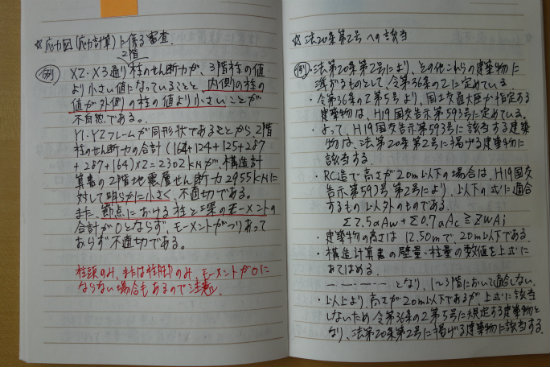 ☆応力図(応力計算)に係る審査.
2階
(例) X2・X3通り柱のせん断力が、3階柱の値
より小さい値となっていることと 内側の柱の
値が外側の柱の値より小さいことが
不自然である。
Y1・Y2フレームが同形状であることから、2階
柱のせん断力の合計 (164+124+125+287
+287+164)×2=2302kNが、構造計
算書の2階地震層せん断力2955kNに
対して明らかに小さく、不適切である。
また、節点における柱と梁のモーメントの
合計が0とならず、モーメントがつりあって
おらず不適切である。
柱頭のみ、または柱脚のみ、モーメントが0に
ならない場合もあるので注意
☆ 法20条第2号 への該当
(例)・法第20条第2号により、その他これらの建築物に
準ずるものとして、令第36条の2に定めている.
・令第36条の2第5号より、国土交通大臣が指定する
建築物は、H19国交告示第593号に定めている。
・よって、H19国交告示第593号に該当する建築
物は、法第20条第2号に掲げる建築物に
該当する。
・RC造で高さが20m以下の場合は、H19国交
告示第593号第2号により、以下の式に適合
するもの以外のものである。
Σ2.5αAw+Σ0.7αAc≧ZWAi
・建築物の高さは 12.50mで、20m以下である.
・構造計算書の壁量・柱量の数値を上式に
あてはめる。
となり、1〜3階において適合しない.
・以上より、高さが20m以下であるが上式に該当
しないため、令第36条の2第5号に規定する建築物と
なり、法第20条第2号に掲げる建築物に該当する.